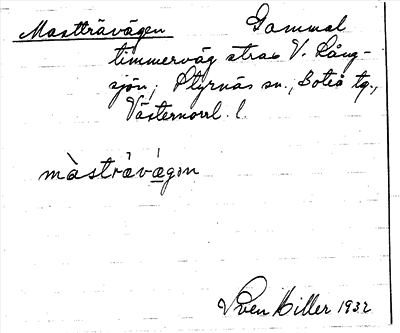 Mastträvägen Gammal
timmerväg strax V. Lång-
sjön, Styrnäs sn., Boteå tg.,
Västernorrl. l.
màstràvä̀gən
Sven Hiller 1932